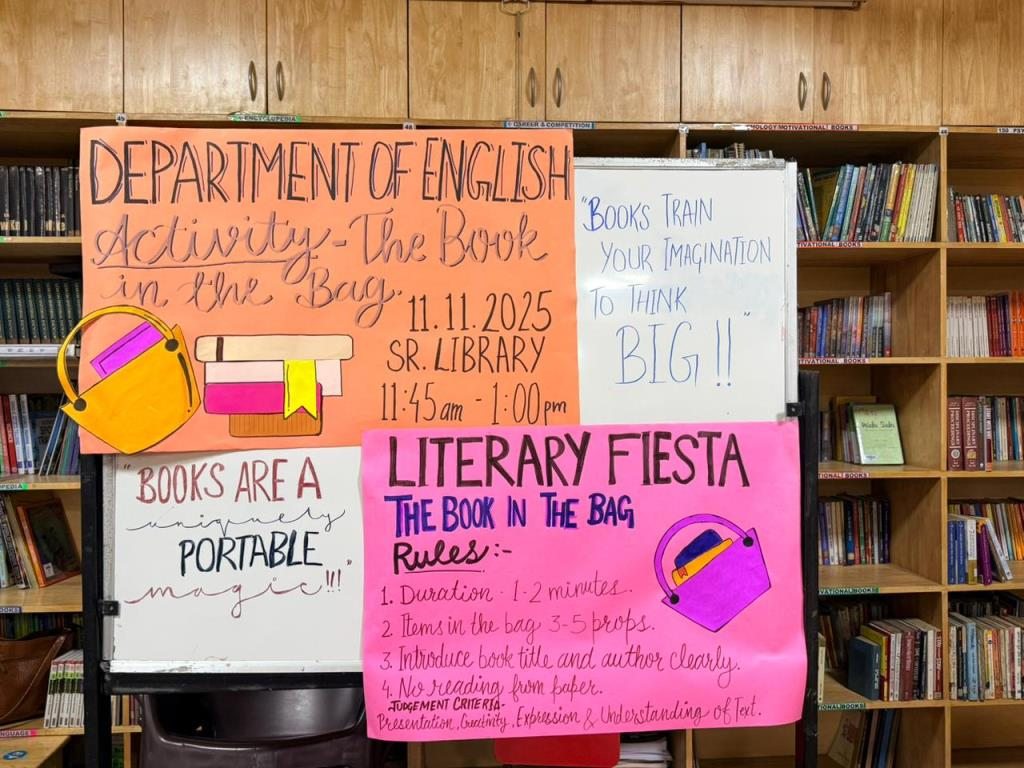 ENCYCLOPEDIA
48
CAREER & COMPETITION
MOLOGY/MOTIVATIONAL BOOKS
DEPARTMENT OF ENGLISH
Activity - The Book
in the Bag.
11.11.2025
SR. LIBRARY
11:45am - 1:00pm
"BOOKS TRAIN
YOUR IMAGINATION
TO THINK
BIG!!"
"BOOKS ARE A
uniquely
PORTABLE
magic!!!"
LITERARY FIESTA
THE BOOK IN THE BAG
Rules:-
1. Duration - 1-2 minutes.
2. Items in the bag 3-5 props.
3. Introduce book title and author clearly.
4. No reading from paper.
JUDGEMENT CRITERIA-
Presentation, Creativity, Expression & Understanding of Text.
Wabi Sabi